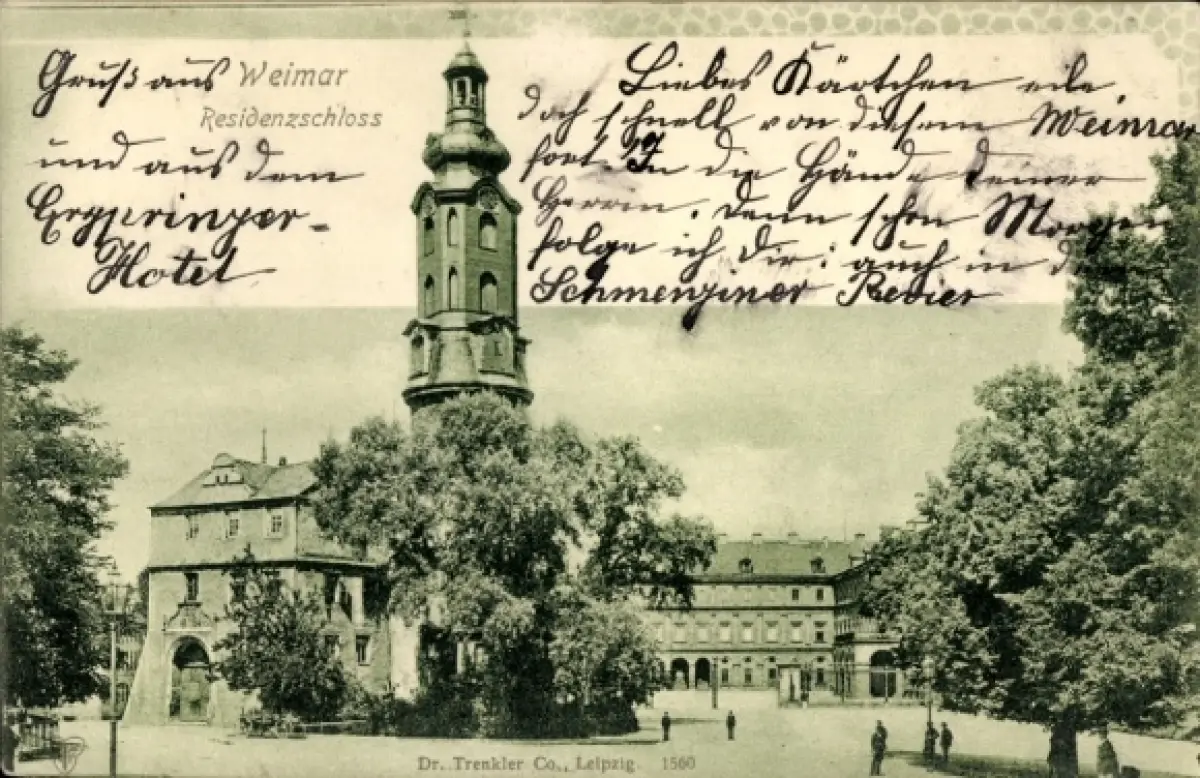 Gruß aus Weimar
Residenzschloss
und aus dem
Hotel
Liebes Kärtchen eile,
doch schnell von diesem
fort. In die Hände deiner
Herrin, denn schon Morgen
folge ich Dir; auch in
Revier
Dr. Trenkler Co., Leipzig. 1560